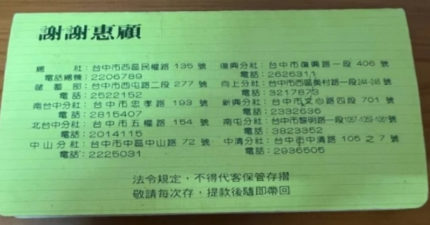 謝謝惠顧
總社：台中市西區民權路 135 號
電話總機：2206789
儲蓄部：台中市西屯路二段 277 號
電話：2522152
南台中分社：台中市忠孝路 193 號
電話：2815407
北台中分社：台中市五權路 154 號
電話：2014115
中山分社：台中市中區中山路 72 號
電話：2225031
復興分社：台中市復興路一段 406 號
電話：2626311
向上分社：台中市西區美村路一段 號
電話：3217873
新興分社：台中市文心路四段 701 號
電話：2332636
南屯分社：台中市黎明路一段 號
電話：3823352
中清分社：台中市中清路 105 之 7 號
電話：2936505
法令規定，不得代客保管存摺
敬請每次存，提款後隨即帶回